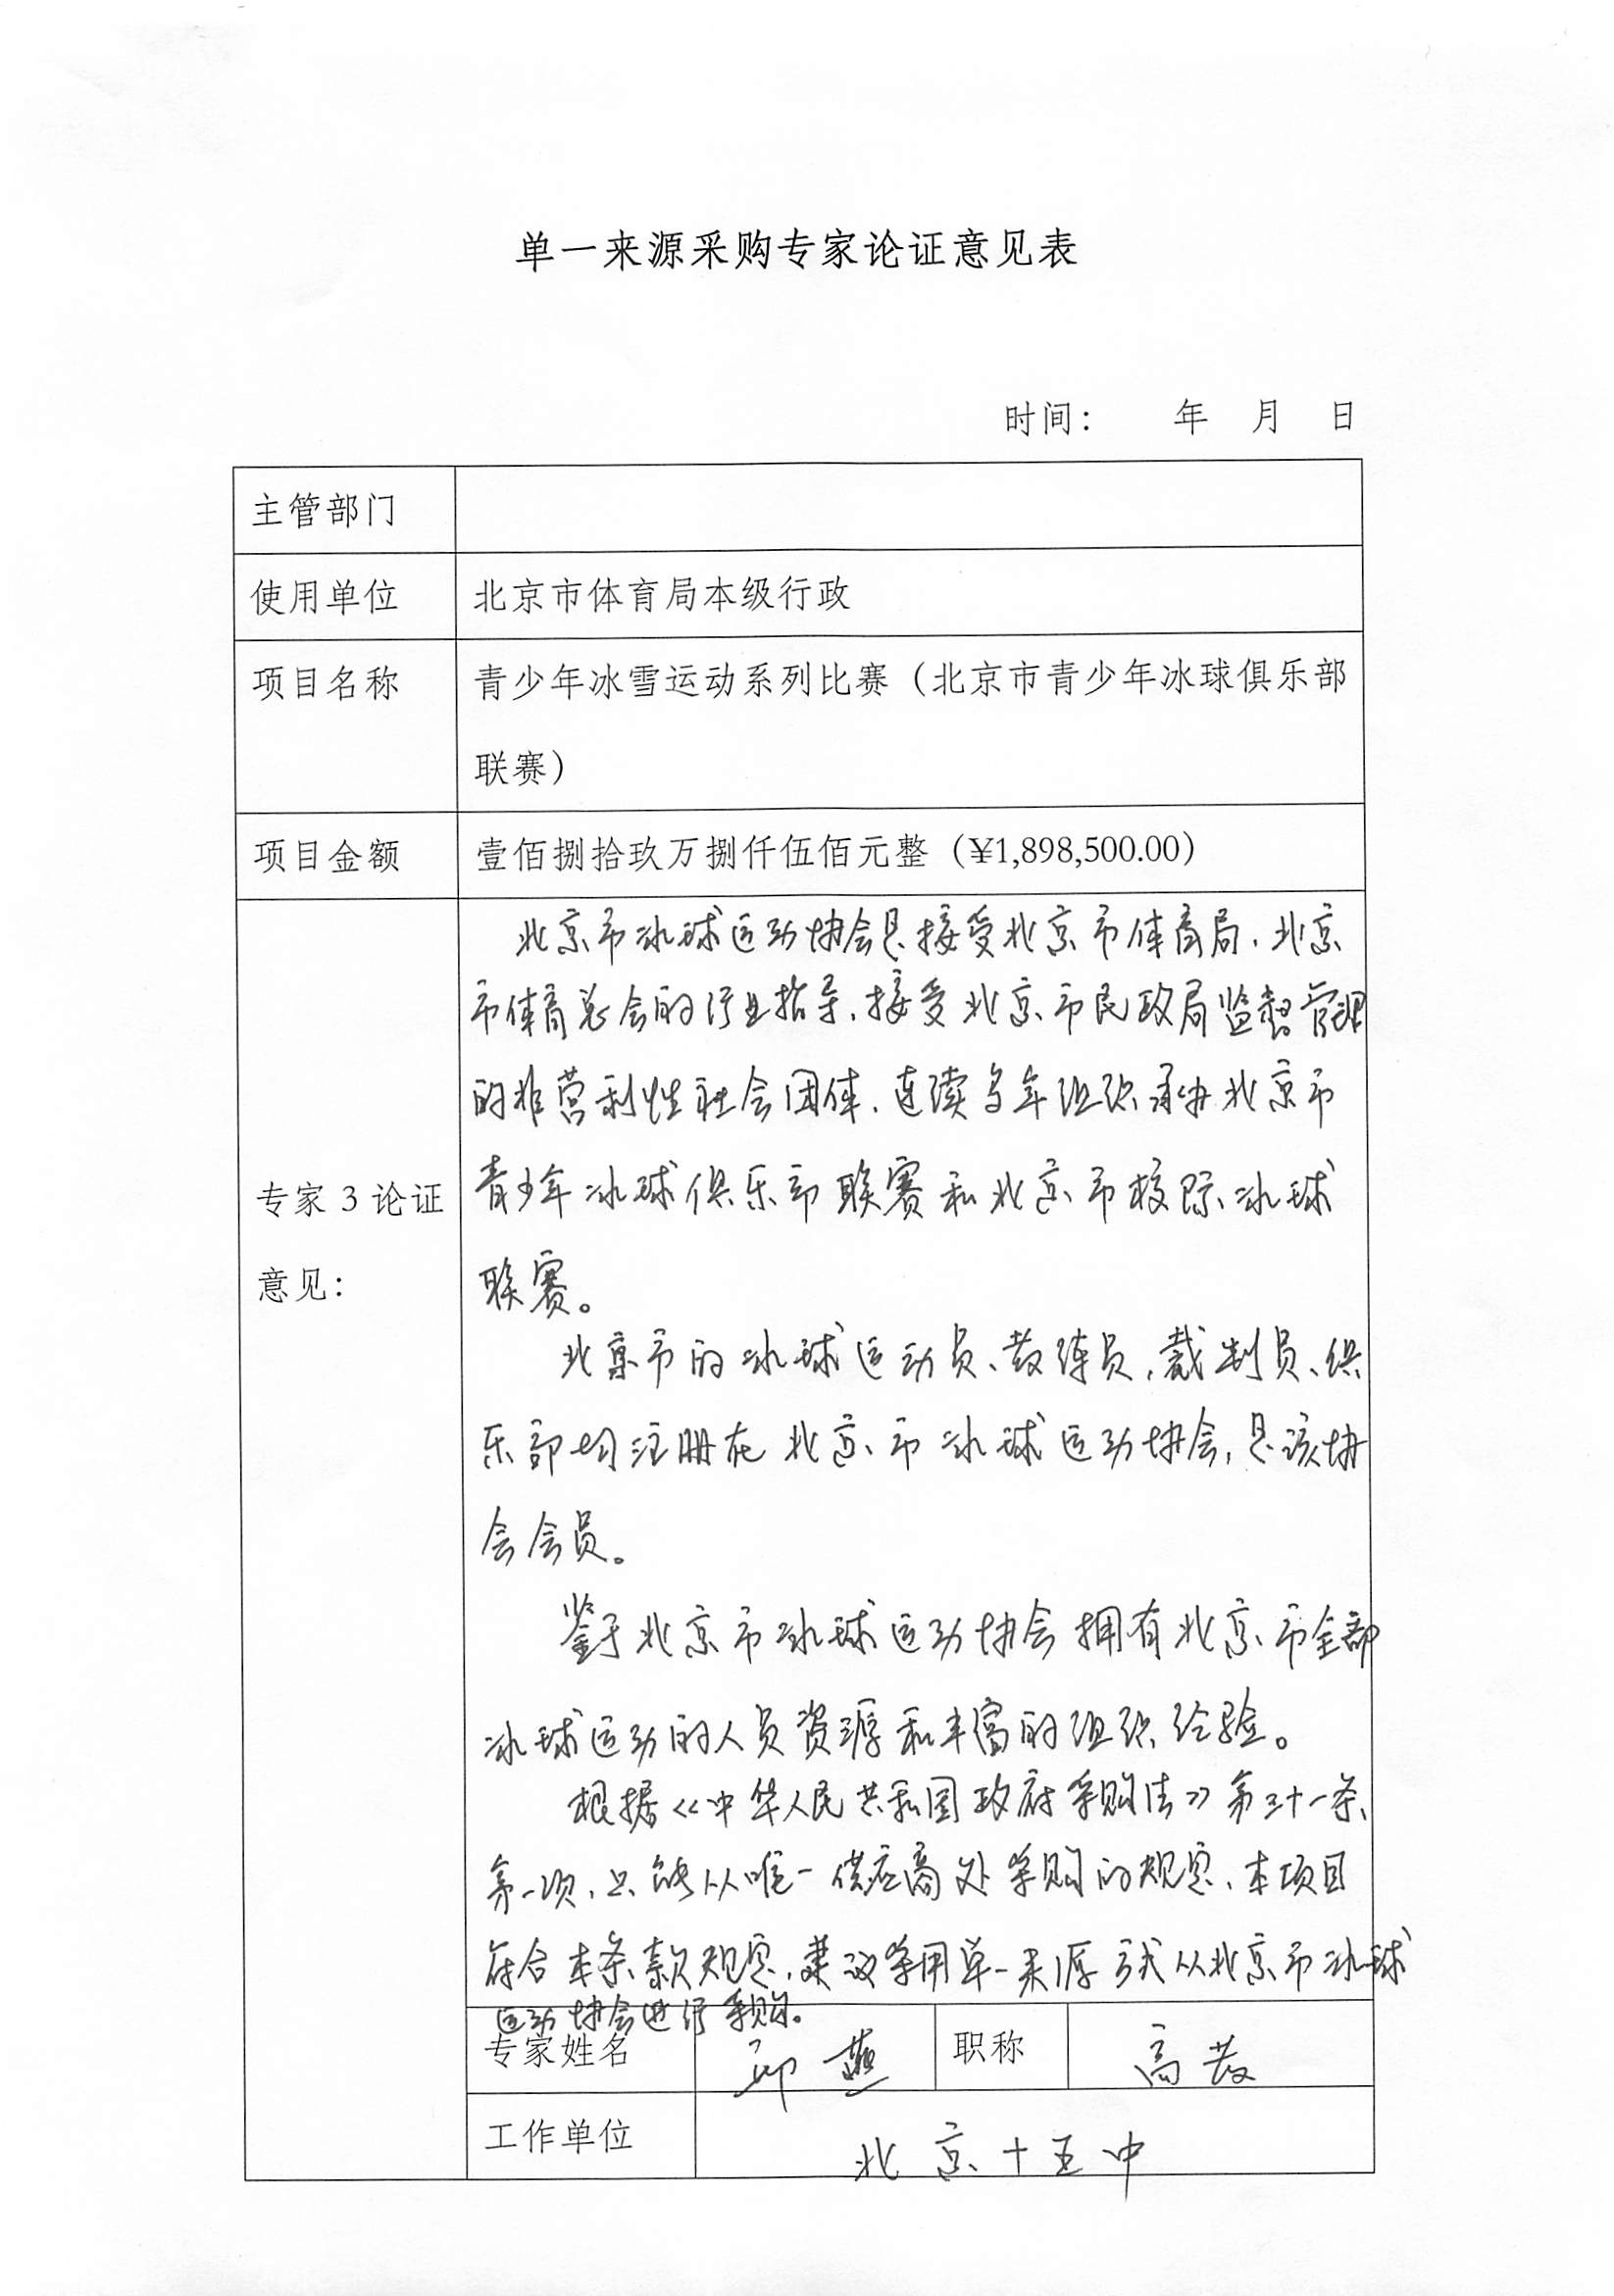 单一来源采购专家论证意见表
时间： 年 月 日
主管部门
使用单位 北京市体育局本级行政
项目名称 青少年冰雪运动系列比赛（北京市青少年冰球俱乐部
联赛）
项目金额 壹佰捌拾玖万捌仟伍佰元整（¥1,898,500.00）
专家 3 论证
意见：
北京市冰球运动协会是接受北京市体育局、北京
市体育总会的行业指导、接受北京市民政局监督管理
的非营利性社会团体、连续多年组织承办北京市
青少年冰球俱乐部联赛和北京市校际冰球
联赛。
北京市的冰球运动员、教练员、裁判员、俱
乐部均注册在北京市冰球运动协会，是该协
会会员。
鉴于北京市冰球运动协会拥有北京市全部
冰球运动的人员资源和丰富的组织经验。
根据《中华人民共和国政府采购法》第三十一条、
第一项、只能从唯一供应商处采购的规定、本项目
符合本条款规定，建议采用单一来源方式从北京市冰球
运动协会进行采购。
专家姓名 邱燕 职称 高教
工作单位 北京十五中